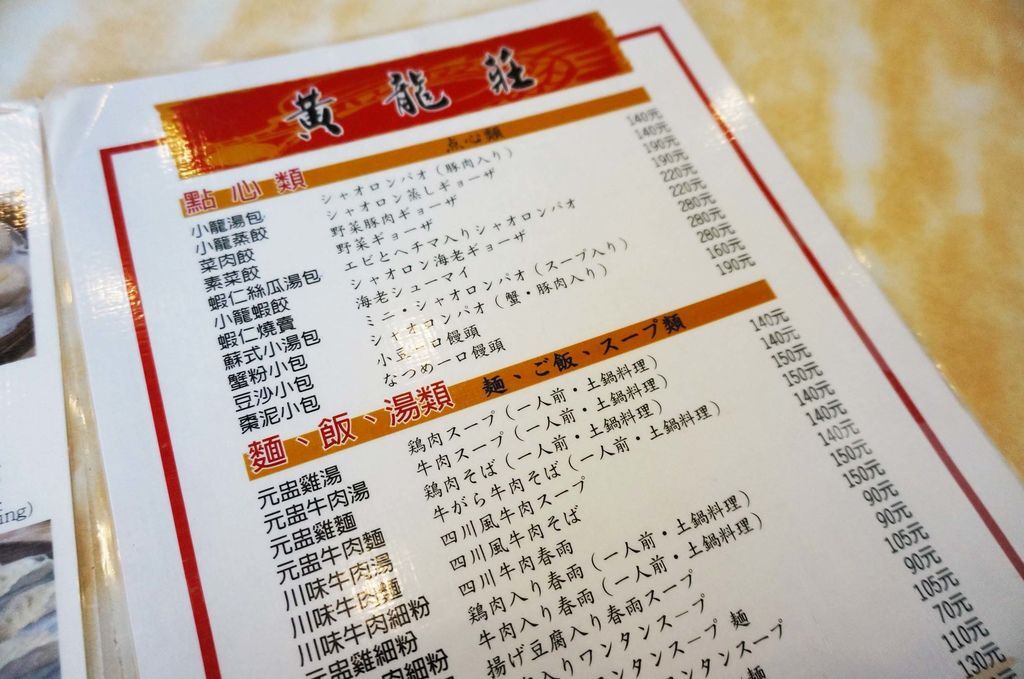 黃龍莊
點心類 点心類
小籠湯包 シャオロンパオ（豚肉入り） 140元
小籠蒸餃 シャオロン蒸しギョーザ 140元
菜肉餃 野菜豚肉ギョーザ 190元
素菜餃 野菜ギョーザ 190元
蝦仁絲瓜湯包 エビとヘチマ入りシャオロンパオ 220元
小籠蝦餃 シャオロン海老ギョーザ 220元
蝦仁燒賣 海老シューマイ 280元
蘇式小湯包 ミニ・シャオロンパオ（スープ入り） 280元
蟹粉小包 シャオロンパオ（蟹・豚肉入り） 280元
豆沙小包 小豆一口饅頭 160元
棗泥小包 なつめ一口饅頭 190元
麵、飯、湯類 麺、ご飯、スープ類
元盅雞湯 鶏肉スープ（一人前・土鍋料理） 140元
元盅牛肉湯 牛肉スープ（一人前・土鍋料理） 140元
元盅雞麵 鶏肉そば（一人前・土鍋料理） 150元
元盅牛肉麵 牛がら牛肉そば（一人前・土鍋料理） 150元
川味牛肉湯 四川風牛肉スープ 140元
川味牛肉麵 四川風牛肉そば 140元
川味牛肉細粉 四川牛肉春雨 150元
元盅雞細粉 鶏肉入り春雨（一人前・土鍋料理） 150元
牛肉入り春雨（一人前・土鍋料理） 90元
揚げ豆腐入り春雨スープ 90元
入りワンタンスープ 105元
ンタンスープ 麺 90元
ンタンスープ 105元
70元
110元
130元
ing)